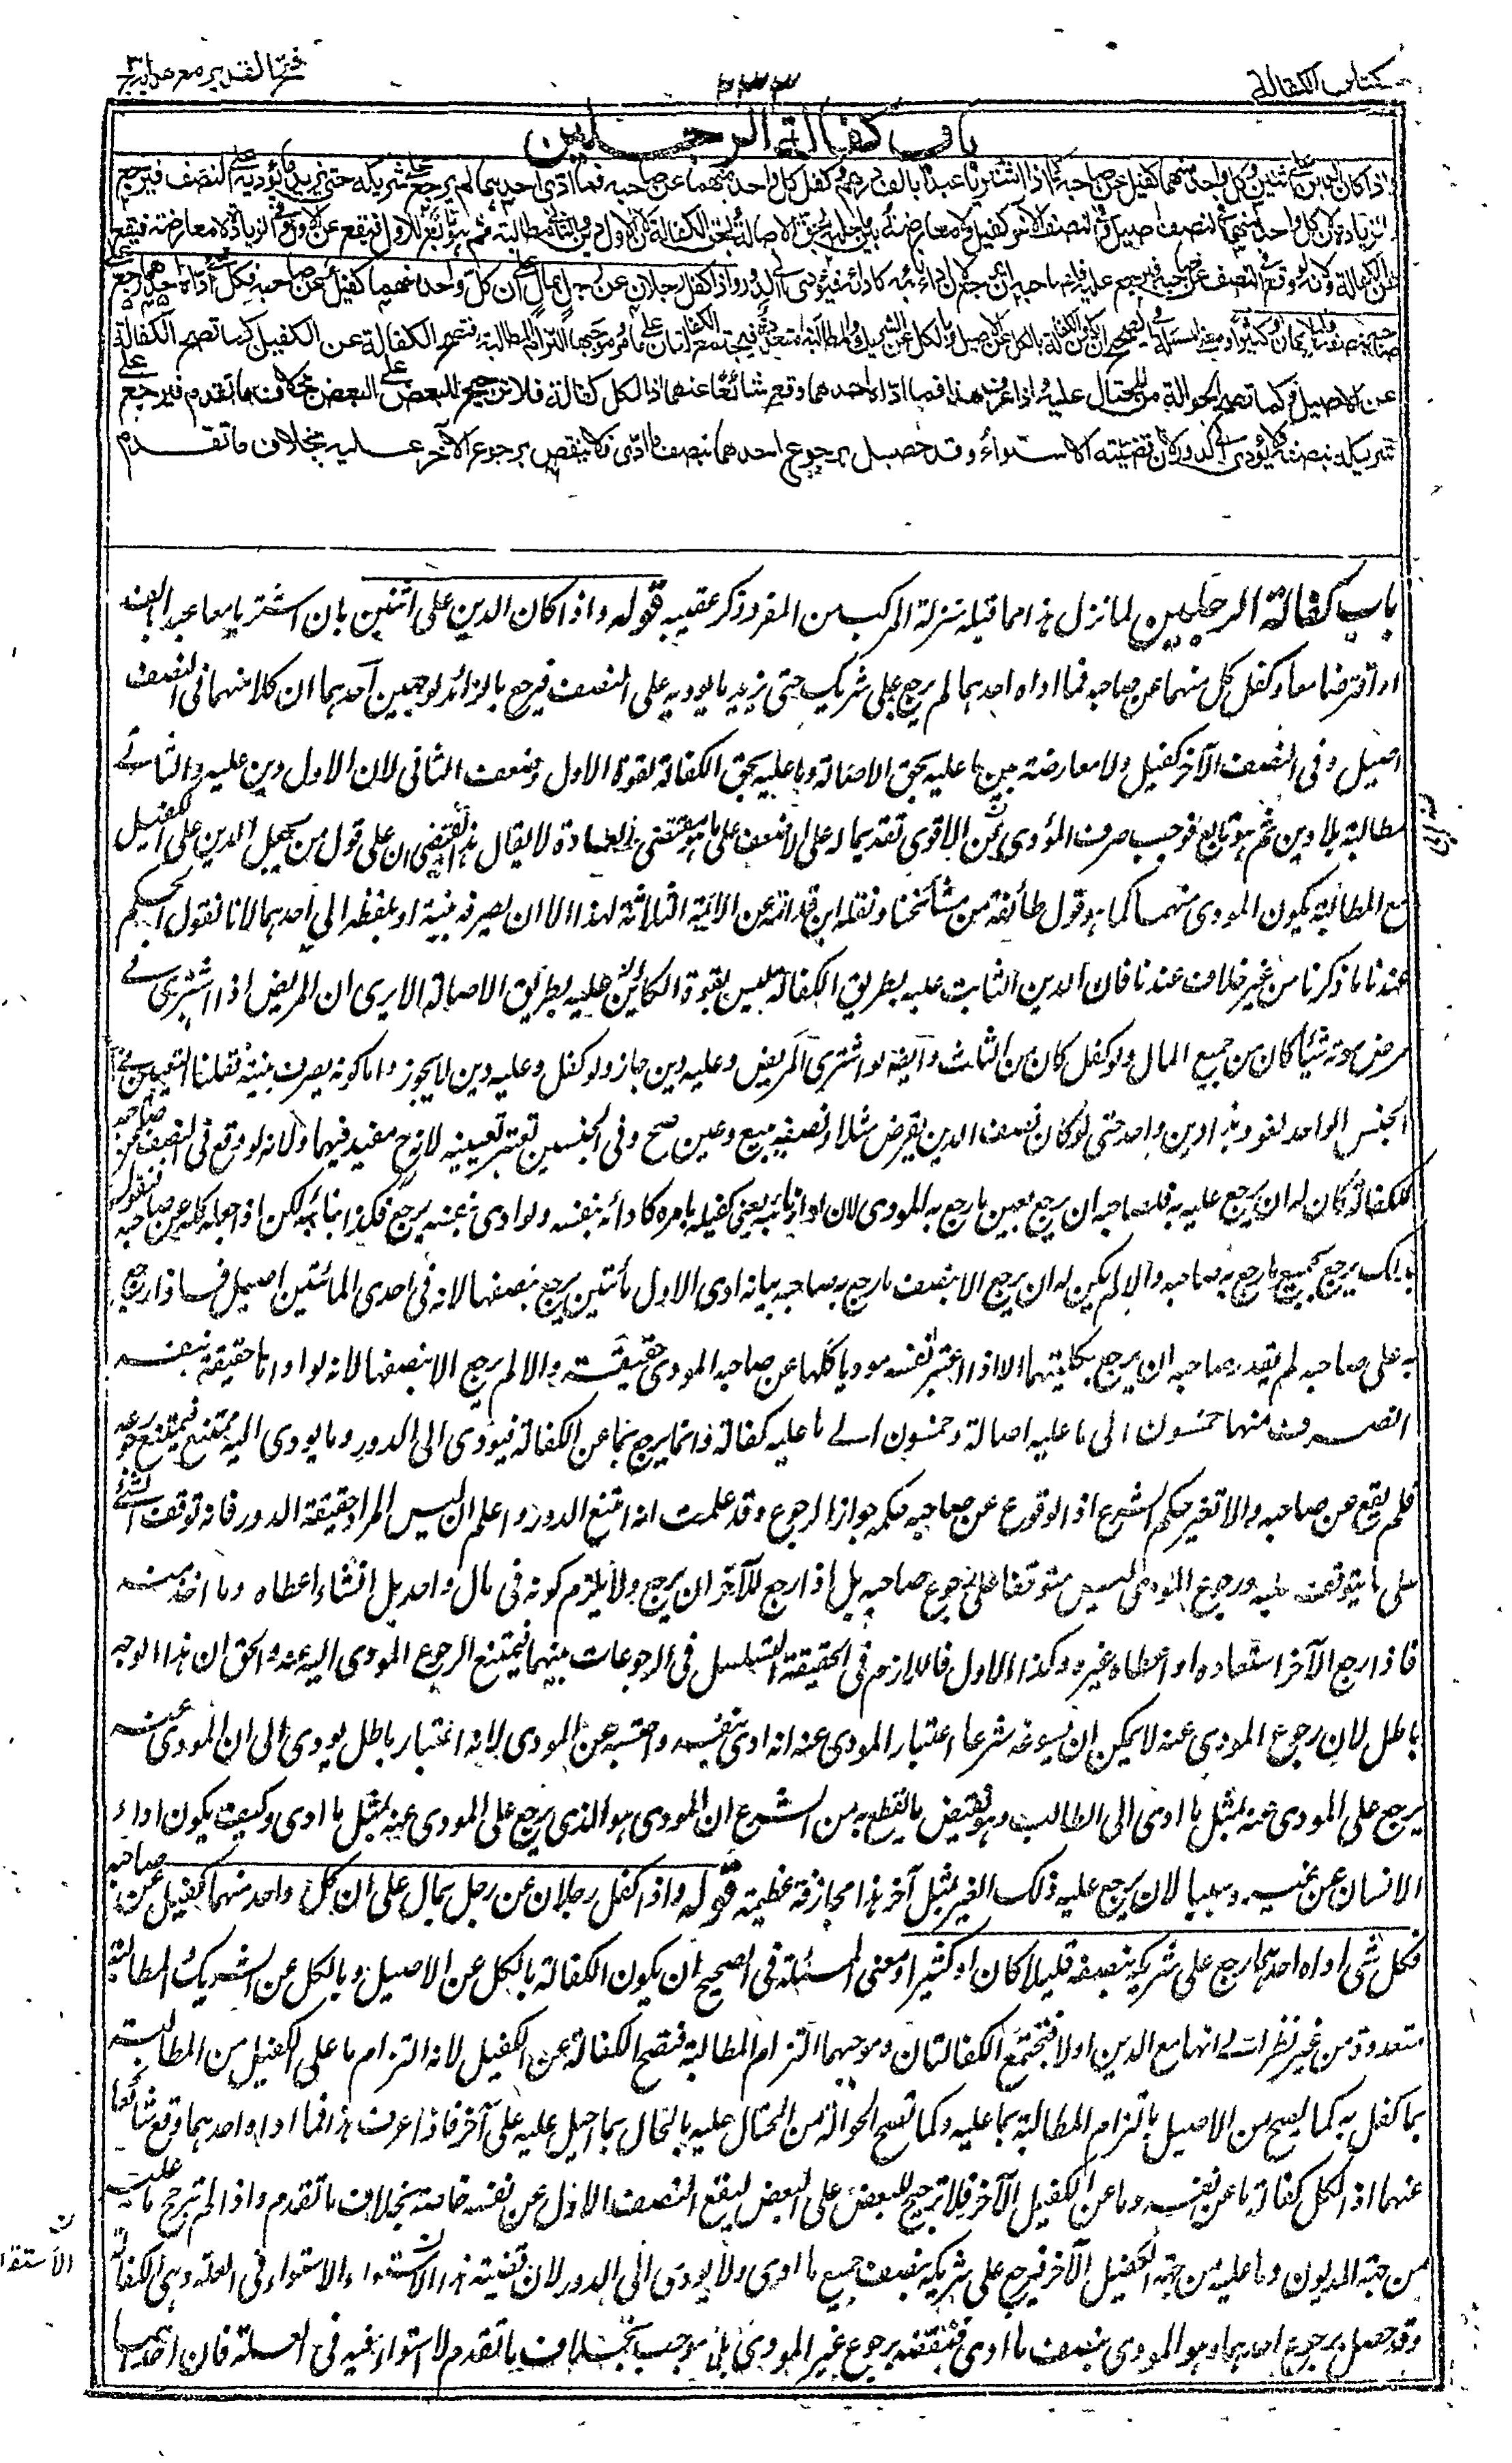 كتاب الكفالة
۲۳۳
فتح القدير مع هداية ج ۳
باب كفالة الرجلين
واذا كان الدين على اثنين وكل واحد منهما كفيل عن صاحبه كما اذا اشتريا عبدا بالف درهم وكفل كل واحد منهما عن صاحبه فما ادى احدهما لم يرجع على شريكه حتى يزيد ما يؤديه على النصف فيرجع
بالزيادة لان كل واحد منهما في النصف اصيل وفي النصف الآخر كفيل ولا معارضة بين ما عليه بحق الاصالة وبحق الكفالة لان الاول دين والثاني مطالبة ثم هو تابع للاول فيقع عن الاول وفي الزيادة لا معارضة فيقع
عن الكفالة ولانه لو وقع في النصف عن صاحبه فيرجع عليه فلصاحبه ان يرجع لان اداء نائبه كادائه فيؤدي الى الدور واذا كفل رجلان عن رجل بمال على ان كل واحد منهما كفيل عن صاحبه فكل شيء اداه احدهما رجع على
صاحبه بنصفه قليلا كان او كثيرا ومعنى المسئلة في الصحيح ان يكون الكفالة بالكل عن الاصيل وبالكل عن الشريك والمطالبة متعددة فيجتمع الكفالتان على ما مر وموجبها التزام المطالبة فتصح الكفالة عن الكفيل كما تصح الكفالة
عن الاصيل وكما تصح الحوالة من المحتال عليه واذا عرف هذا فما اداه احدهما وقع شائعا عنهما اذ الكل كفالة فلا ترجيح للبعض على البعض بخلاف ما تقدم فيرجع على
شريكه بنصفه فلا يؤدي الى الدور لان قضيته الاستواء وقد حصل برجوع احدهما بنصف ما ادى فلا ينقض برجوع الآخر عليه بخلاف ما تقدم
باب كفالة الرجلين لما نزل هذا مما قبله منزلة المركب من المفرد ذكر عقيبه قوله واذا كان الدين على اثنين بان اشتريا معا عبدا بالف
او اقترضا معا وكفل كل منهما عن صاحبه فما اداه احدهما لم يرجع على شريكه حتى يزيد ما يوديه على النصف فيرجع بالزائد لوجهين احدهما ان كلا منهما في النصف
اصيل وفي النصف الآخر كفيل ولا معارضة بين ما عليه بحق الاصالة وما عليه بحق الكفالة لقوة الاول وضعف الثاني لان الاول دين عليه والثاني
مطالبة بلا دين ثم هو تابع فوجب صرف المؤدي عن الاقوى تقديما له على الاضعف على ما هو مقتضى العادة لا يقال هذا يقتضي ان على قول من يجعل الدين على الكفيل
مع المطالبة يكون المودى منهما كما هو قول طائفة من مشائخنا ونقله ابن قدامة عن الائمة الثلاثة لهذا الا ان يصرفه بنيته او بلفظه الى احدهما لانا نقول الحكم
عندنا ما ذكرنا من غير خلاف عندنا فان الدين الثابت عليه بطريق الكفالة ليس بقوة الكائن عليه بطريق الاصالة الا يرى ان المريض اذا اشترى في
مرض موته شيئا كان من جميع المال ولو كفل كان من الثلث وايضا لو اشترى المريض وعليه دين جاز ولو كفل وعليه دين لا يجوز واما كونه يصرف بنيته فقلنا التعيين في
الجنس الواحد لغو وهذا دين واحد حتى لو كان نصف الدين بقرض مثلا ونصفه بيع وعين صح وفي الجنسين تعتبر تعيينه لانه ح مفيد فيهما ولانه لو وقع في النصف عن صاحبه
للكفالة كان له ان يرجع عليه به فلصاحبه ان يرجع بعين ما رجع به المودي لان اداء نائبه يعني كفيله بامره كادائه بنفسه ولو ادى بنفسه يرجع فكذا بنائبه لكن اذا جعله كله عن صاحبه فيقول
بذلك يرجع بجميع ما رجع به صاحبه والا لم يكن له ان يرجع الا بنصف ما رجع به صاحبه بيانه ادى الاول مائتين يرجع بنصفها لانه في احدى المائتين اصيل فاذا رجع
به على صاحبه لم يقدر صاحبه ان يرجع بكليتهما الا اذا اعتبر نفسه موديا كلها عن صاحبه المودي حقيقة والا لم يرجع الا بنصفها لانه لو اداها حقيقة بنفسه
انصرف منها خمسون الى ما عليه اصالة وخمسون الى ما عليه كفالة وانما يرجع بما عن الكفالة فيؤدي الى الدور وما يودي اليه ممتنع فيمتنع رجوعه
فلم يقع عن صاحبه والا تغير حكم الشرع اذ الوقوع عن صاحبه حكمه جواز الرجوع وقد علمت انه امتنع الدور واعلم ان ليس المراد حقيقة الدور فانه توقف الشيء
على ما يتوقف عليه ورجوع المودي ليس متوقفا على رجوع صاحبه بل اذا رجع للآخر ان يرجع ولا يلزم كونه في مال واحد بل ان شاء اعطاه وما اخذ منه
فاذا رجع الآخر استعاده او اعطاه غيره وكذا الاول فاللازم في الحقيقة التسلسل في الرجوعات بينهما فيمتنع الرجوع المودي اليه عنه والحق ان هذا الوجه
باطل لان رجوع المودي عنه لا يمكن ان يسوغه شرعا اعتبار المودي عنه انه ادى بنفسه واحتسبه عن المودي لانه اعتبار باطل يودي الى ان المودي عنه
يرجع على المودي عنه بمثل ما ادى الى الطالب وهو نقيض ما يقطع به من الشرع ان المودي هو الذي يرجع على المودي عنه بمثل ما ادى وكيف يكون اداء
الانسان عن غيره سببا لان يرجع عليه ذلك الغير بمثل آخر هذا مجازفة عظيمة قوله واذا كفل رجلان عن رجل بمال على ان كل واحد منهما كفيل عن صاحبه
فكل شئ اداه احدهما رجع على شريكه بنصفه قليلا كان او كثيرا ومعنى المسئلة في الصحيح ان يكون الكفالة بالكل عن الاصيل وبالكل عن الشريك المطالبة
متعددة من غير نظر الى انها مع الدين اولا فتجتمع الكفالتان وموجبهما التزام المطالبة فتصح الكفالة عن الكفيل لانه التزام ما على الكفيل من المطالبة
بما كفل به كما يصح من الاصيل بالتزام المطالبة بما عليه وكما تصح الحوالة من المحتال عليه بالمحال بما احيل عليه على آخر فاذا عرف هذا فما اداه احدهما وقع شائعا
عنهما اذ الكل كفالة ما عن نفسه وما عن الكفيل الآخر فلا ترجيح للبعض على البعض ليقع النصف الاول عن نفسه خاصة بخلاف ما تقدم واذا لم ترجح ما عليه
من جهة المديون وما عليه من جهة الكفيل الآخر فيرجع على شريكه بنصف جميع ما ادى ولا يودي الى الدور لان قضيته هذا الاستواء الاستواء في العلة وهي الكفالة
وقد حصل برجوع احدهما وهو المودي بنصف ما ادى فتنقضه برجوع غير المودي بلا موجب بخلاف ما تقدم لا استواء فيه في العلة فان احدهما